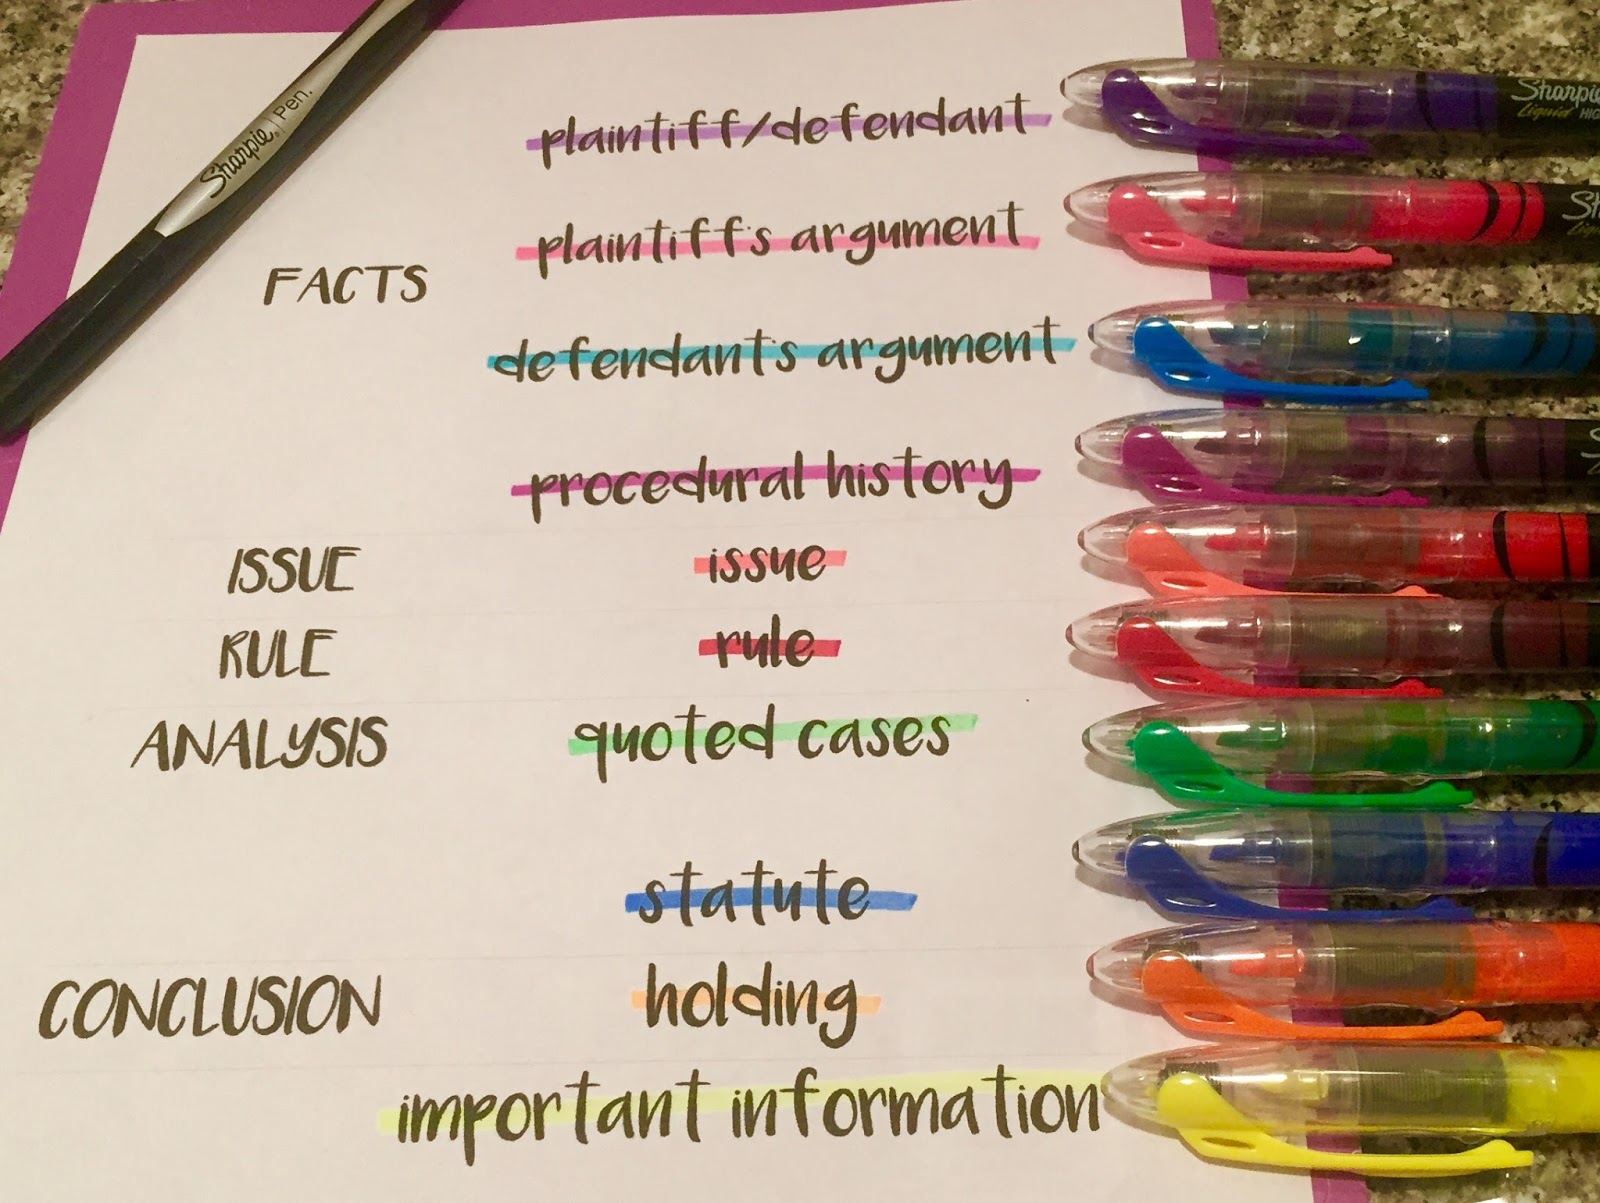 Sharpie Pen.
plaintiff/defendant
Sharpie
Liquid
plaintiff's argument
FACTS
defendant's argument
procedural history
ISSUE issue
RULE rule
ANALYSIS quoted cases
statute
CONCLUSION holding
important information